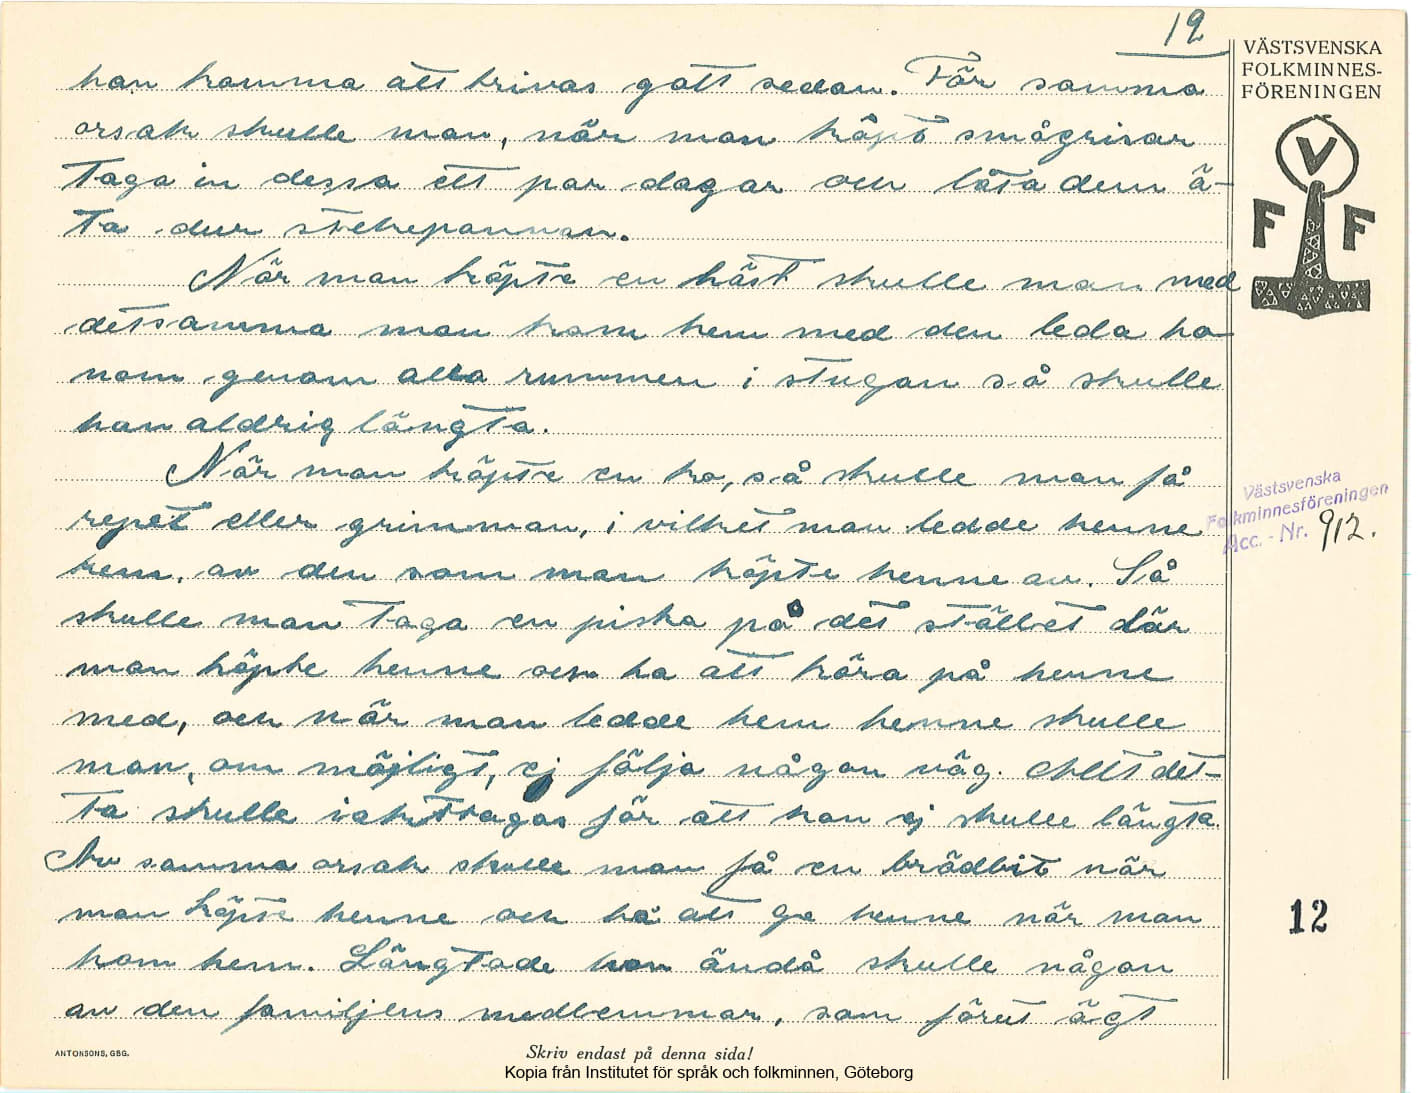 12
VÄSTSVENSKA
FOLKMINNES-
FÖRENINGEN
V
F F
han komma att trivas gott sedan. För samma
orsak skulle man, när man köpt smågrisar
taga in dessa ett par dagar och låta dem ä-
ta ur stekepannan.
När man köpte en häst skulle man med
detsamma man kom hem med den leda ho-
nom genom alla rummen i stugan så skulle
han aldrig längta.
När man köpte en ko, så skulle man få
repet eller grimman, i vilket man ledde henne
hem, av den som man köpte henne av. Så
skulle man taga en piska på det stället där
man köpte henne och ha att köra på henne
med, och när man ledde hem henne skulle
man, om möjligt, ej följa någon väg. Allt det-
ta skulle iakttagas för att hon ej skulle längta.
Av samma orsak skulle man få en brödbit när
man köpte henne och ha att ge henne när man
kom hem. Längtade hon ändå skulle någon
av den familjens medlemmar, som förut ägt
Västsvenska
Folkminnesföreningen
Acc. - Nr. 912.
12
ANTONSONS, GBG.
Skriv endast på denna sida!
Kopia från Institutet för språk och folkminnen, Göteborg